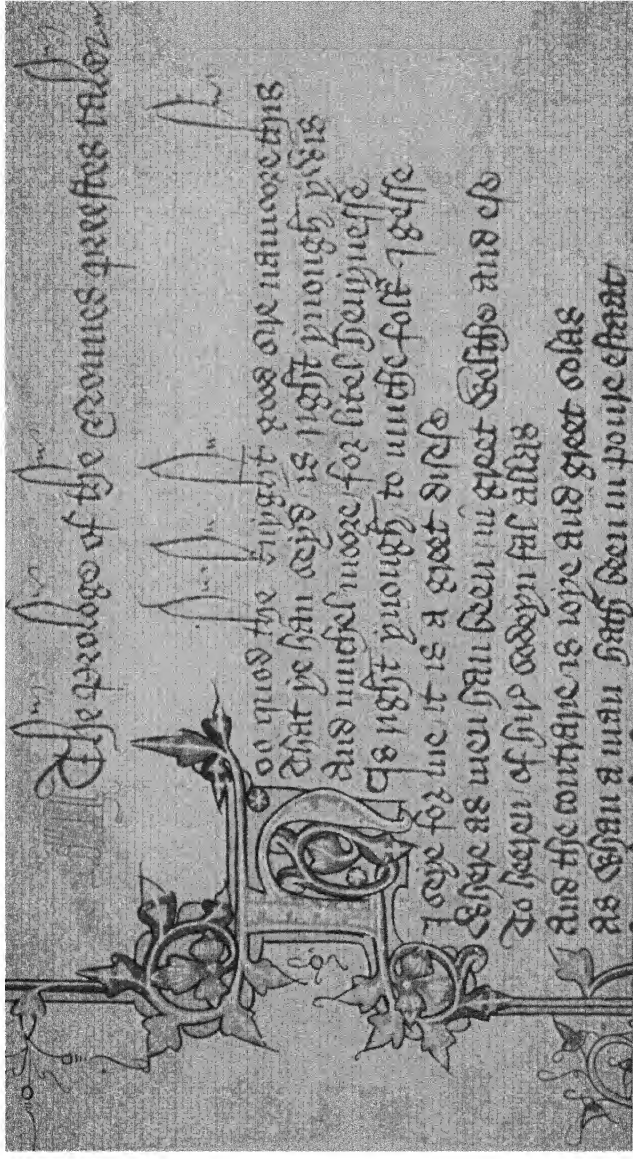 The prologe of the Nonnes preestes tale
Hoo quod the knyght good sire namoore this
That ye han seyd is right ynough ywis
And muchel moore for litel heuynesse
Is right ynough to muche folk I gesse
I seye for me it is a greet disese
Where as men han been in greet welthe and ese
To heeren of hir sodeyn fal allas
And the contrarie is ioye and greet solas
As whan a man hath been in poure estaat